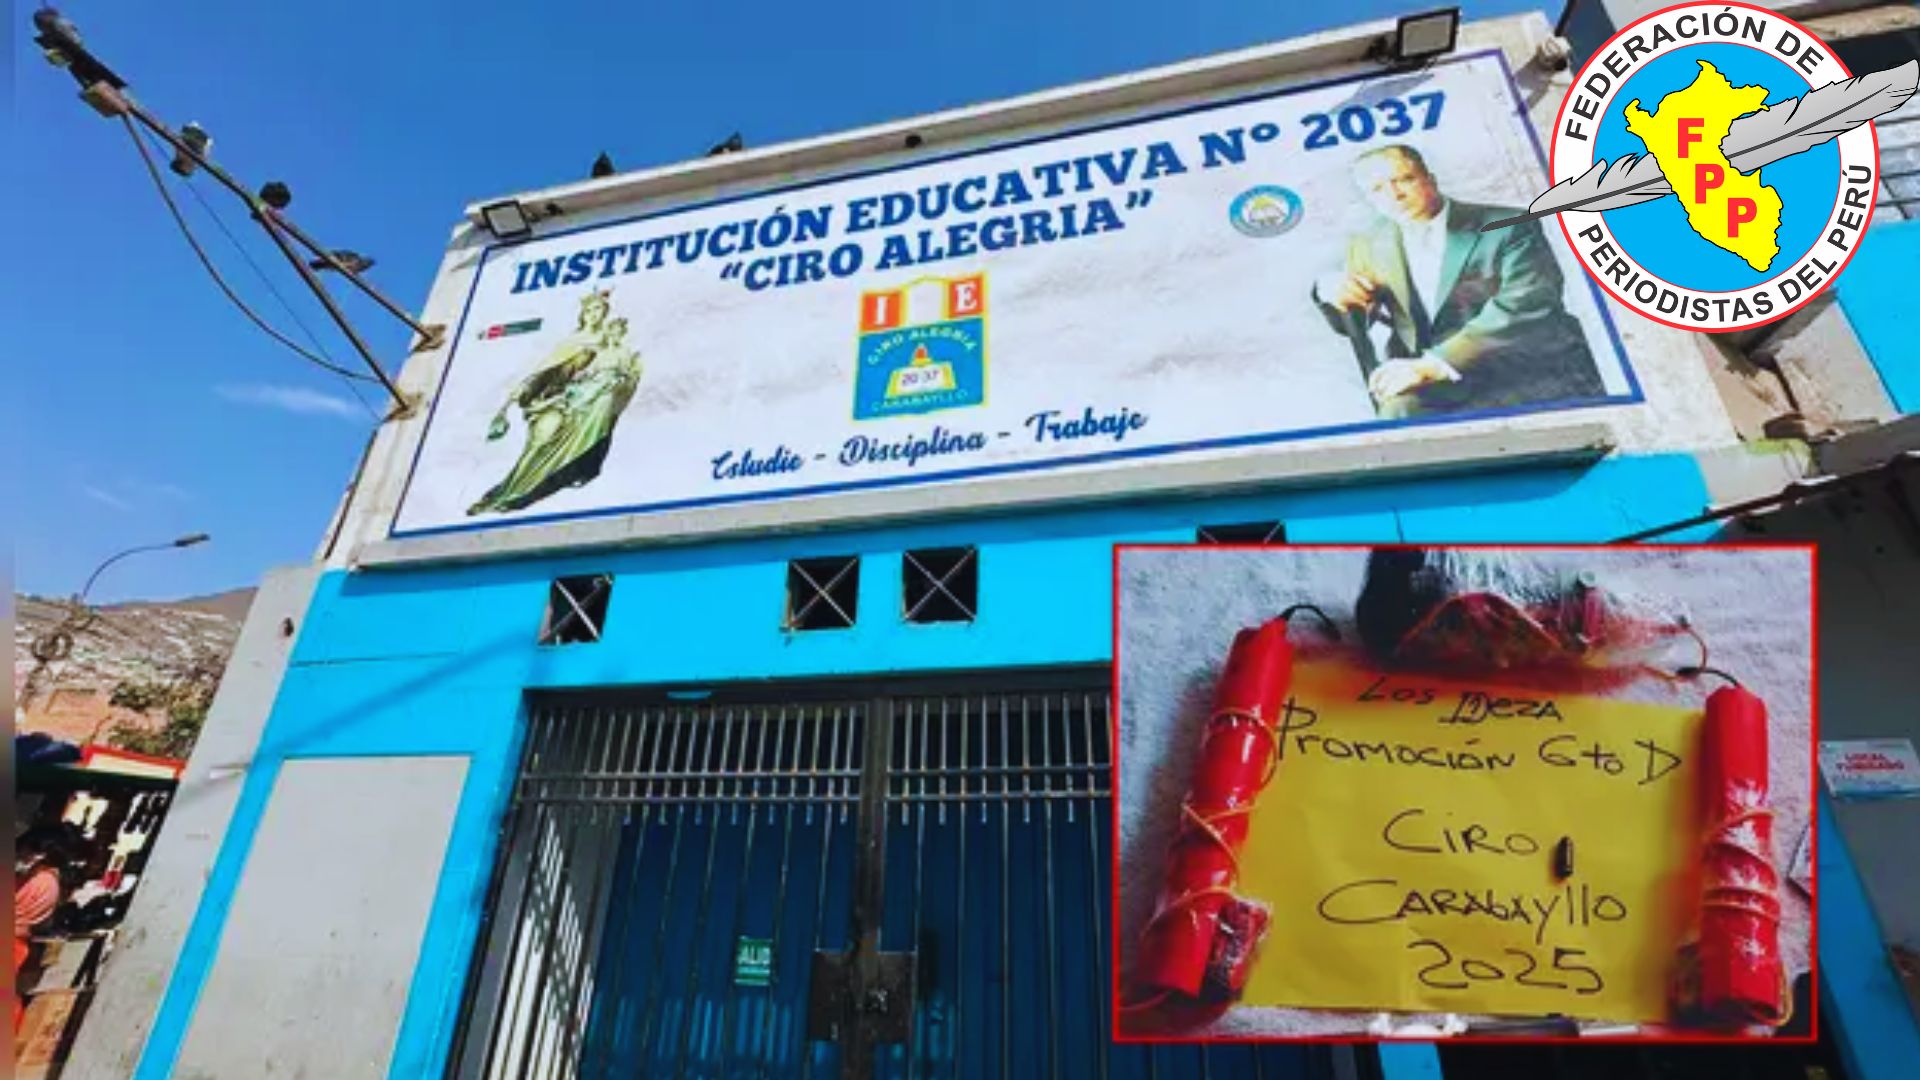 INSTITUCIÓN EDUCATIVA Nº 2037
“CIRO ALEGRIA”
I E
CIRO ALEGRIA
20 37
CARABAYLLO
Estudio - Disciplina - Trabajo
FEDERACIÓN DE
PERIODISTAS DEL PERÚ
F
P
P
Los Deza
Promoción 6to D
Ciro
CARABAYllo
2025
LOCAL